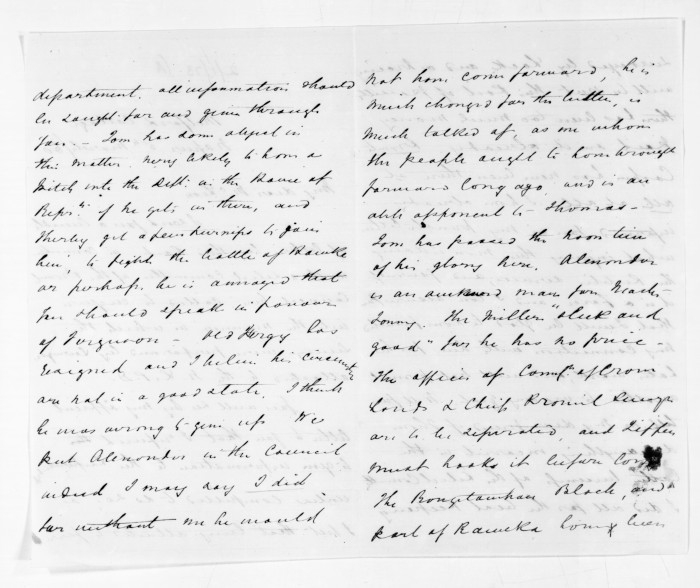 department. all information should
be sought for and given through
you. — Tom has some object in
this matter. very likely to have a
pitch into the Deft. in the House of
Reprs. if he gets in there, and
thereby get a few to join
him, to fight the battle of Hawke
or perhaps he is annoyed that
you should speak in favour
of Ferguson — old Fergy has
resigned and I believe his circumstces
are not in a good state. I think
he was wrong to give up. We
put Alexander in the Council
indeed I may say I did
for without me he would
not have come forward, he is
much changed for the better, is
much talked of, as one whom
the people ought to have brought
forward long ago, and is an
able opponent to Thomas —
Tom has passed the noon time
of his glory here. Alexander
is an awkward man for
Tommy. The Miller "sleek and
good" for he has no price —
The offices of Comr. of Crown
Lands & Chief Provinl Survyr
are to be separated, and
must hook it before long
The Block, and
part of being been